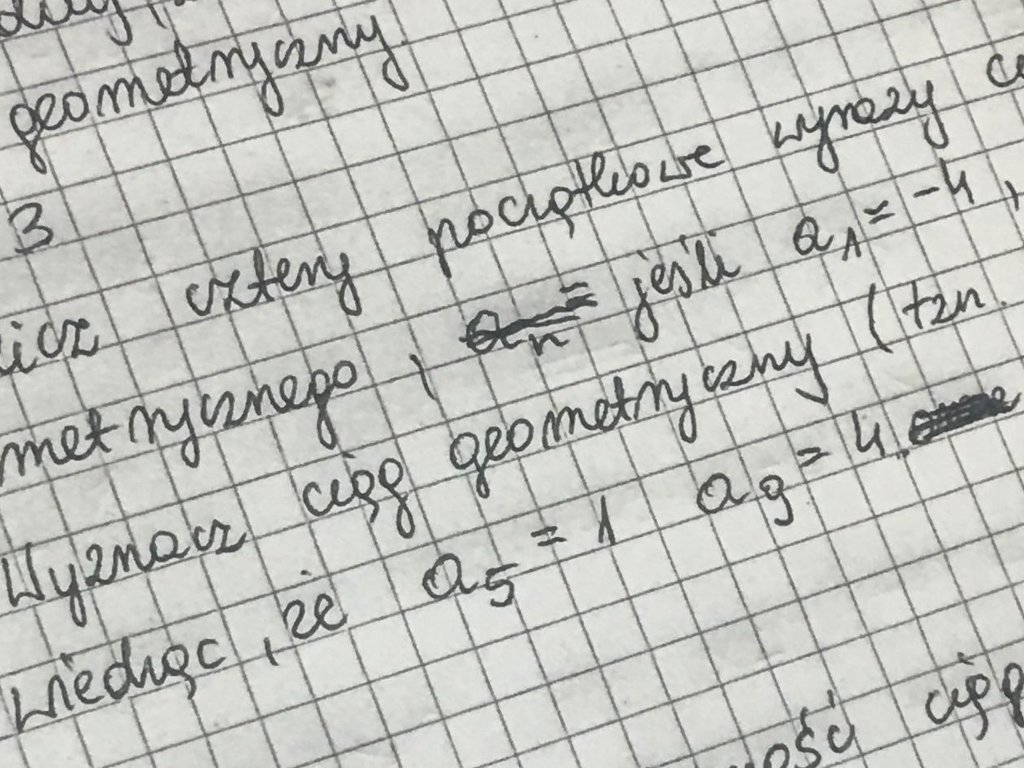 geometryczny
3
icz cztery początkowe wyrazy c
metrycznego, jeśli a₁ = -4,
Wyznacz ciąg geometryczny (tzn.
wiedząc, że a₅ = 1 a₉ = 4
ość ciąg